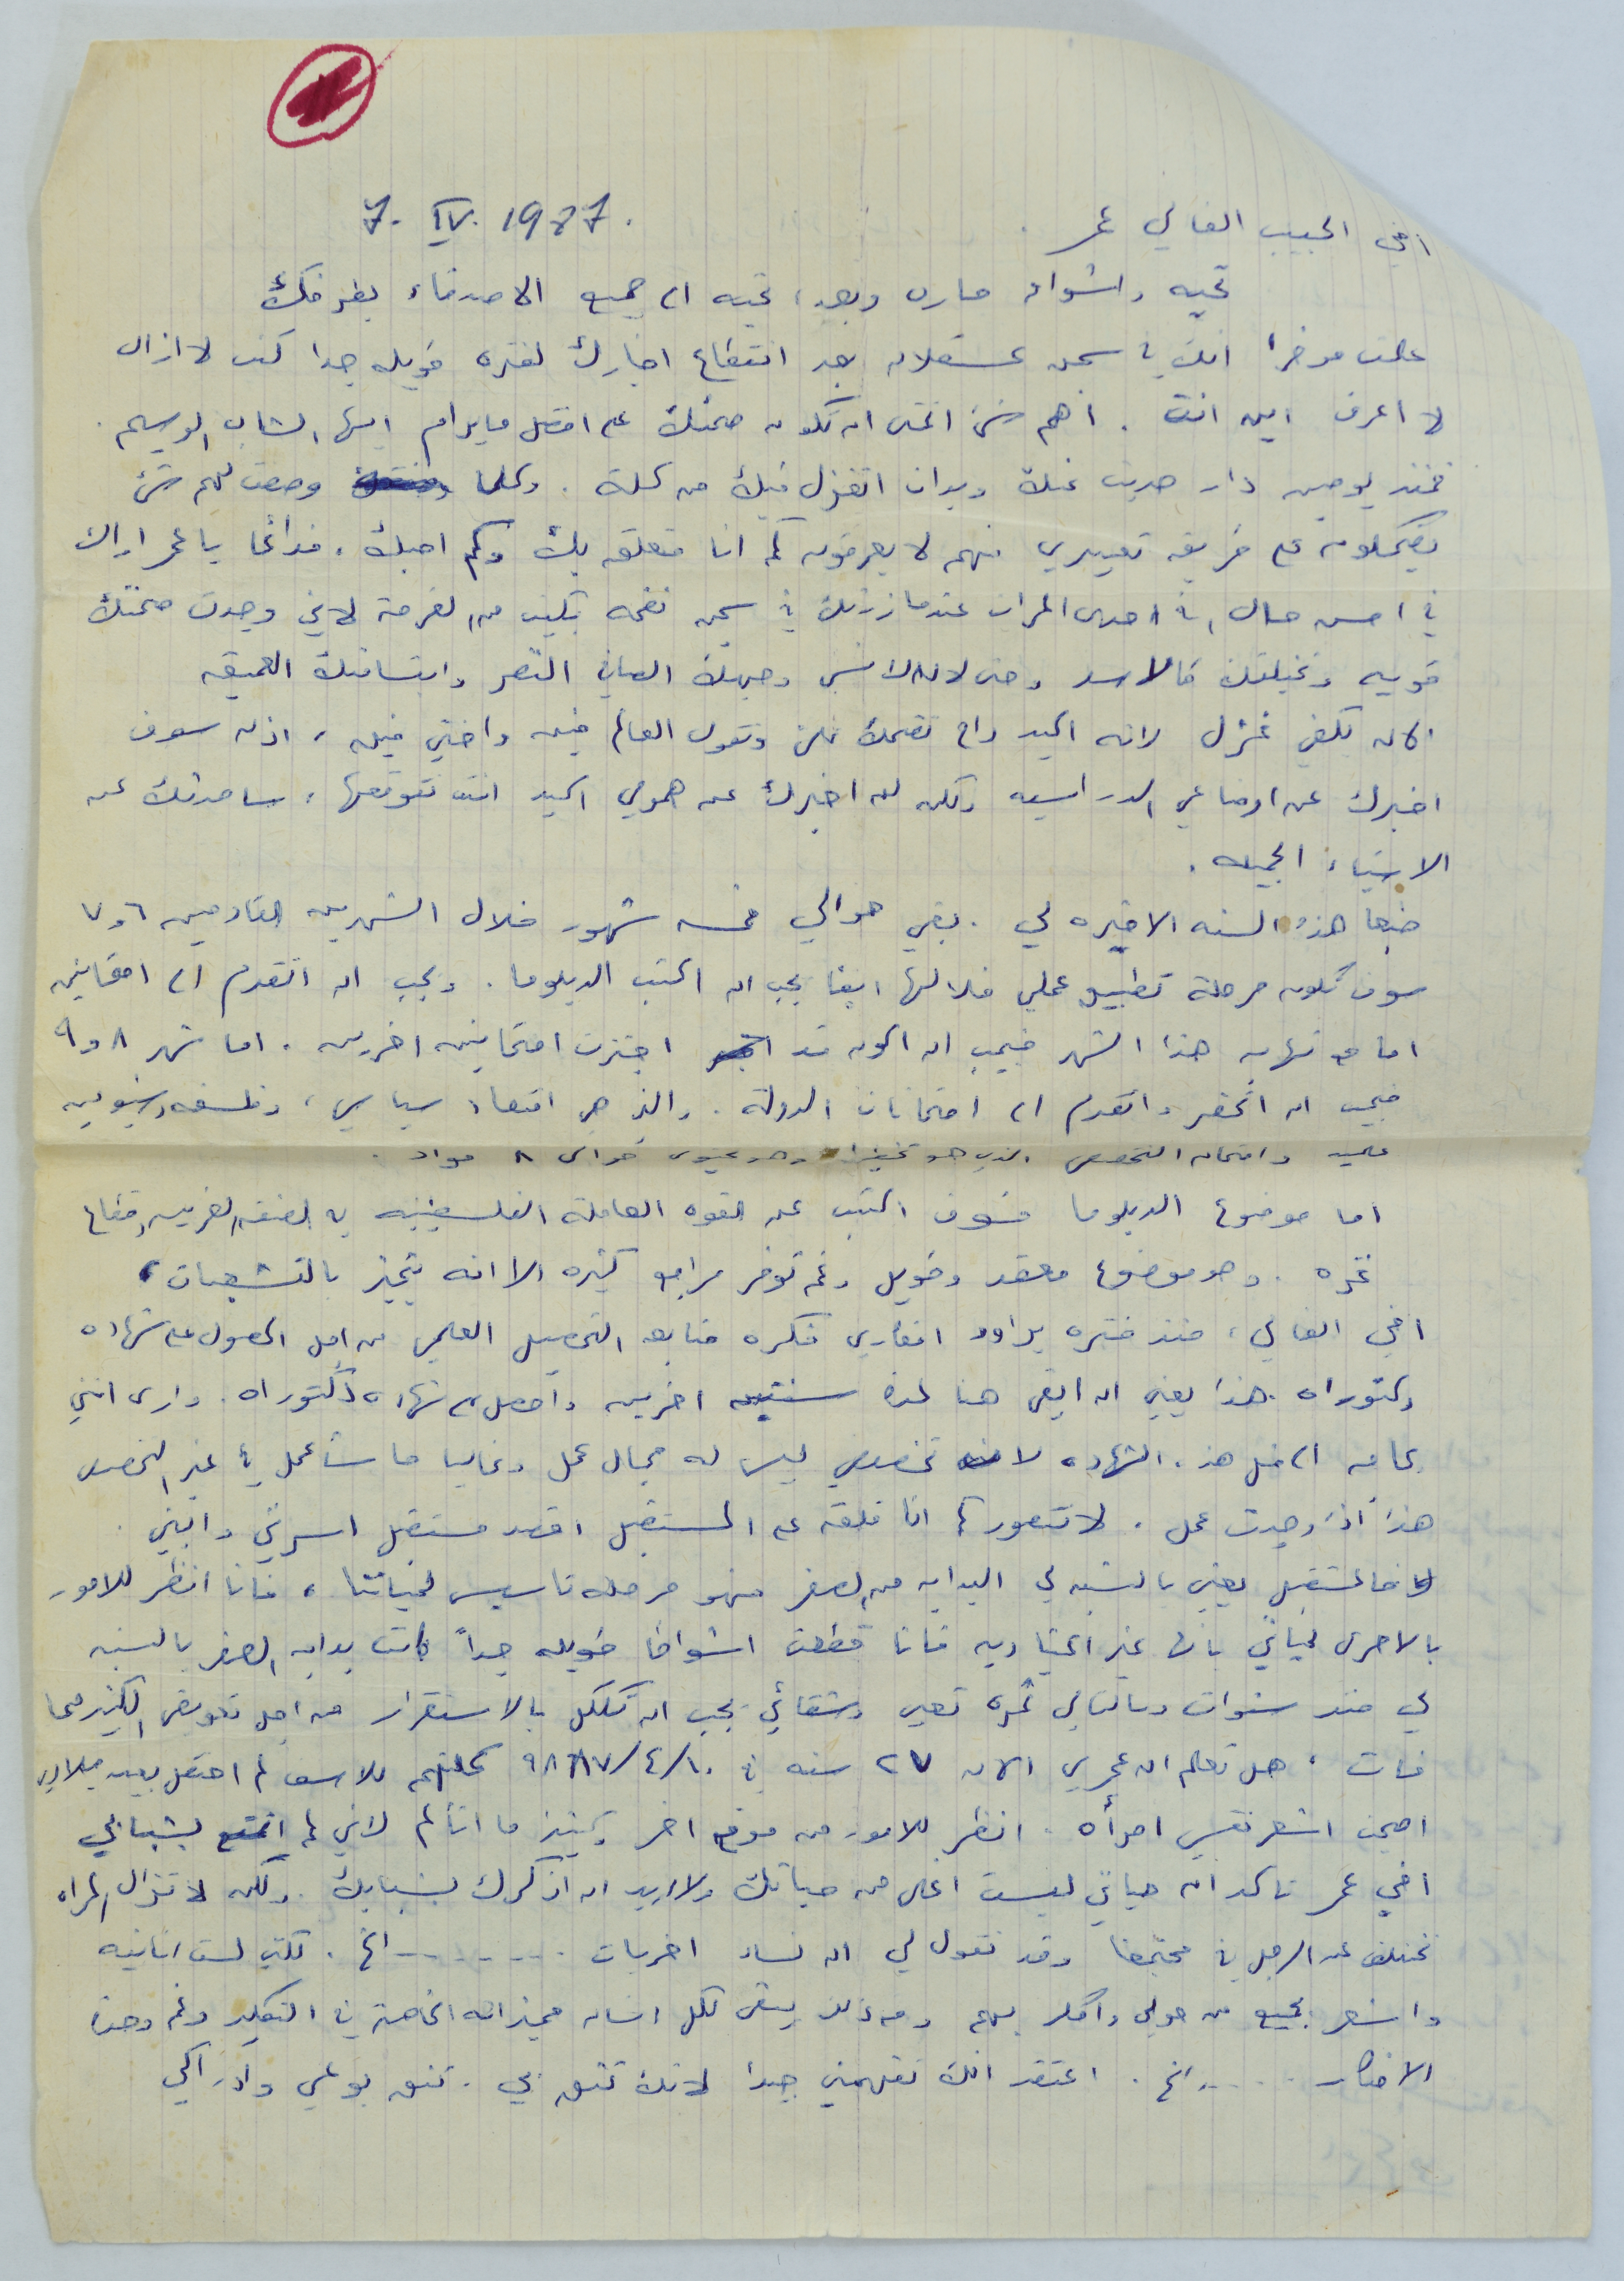 7. IV. 1987.
اخي الحبيب الغالي عمر.
تحيه واشواق حاره وبعد، تحيه الى جميع الاصدقاء بغرفتك
علمت موخرا انك في سجن عسقلان بعد انقطاع اخبارك لفتره طويله جدا كنت لا ازال
لا اعرف اين انت. اهم شئ اتمنى ان تكون صحتك على افضل ما يرام ايها الشاب الوسيم.
فمنذ يومين دار حديث عنك وبدات اتغزل فيك من كلة. وكلما وصفت لهم شئ
يضحكون على طريقة تعبيري فهم لا يعرفون كم انا متعلقه بك وكم احبك. فدائما يا عمر اراك
في احسن حال، في احدى المرات عندما زرتك في سجن نفحه بكيت من الفرحة لانني وجدت صحتك
قويه وتخيلتك كالاسد وحتى الان لا انسى وجهك الصافي النضر وابتسامتك العميقه
الان بكفي غزل لانه اكيد راح تضحك علي وتقول العالم فين واختي فين، اذن سوف
اخبرك عن اوضاعي الدراسيه ولكن لن اخبرك عن همومي اكيد انت تتوقعها، ساحدثك عن
الاشياء الجميله.
طبعا هذه السنه الاخيره لي. بقي حوالي خمسه شهور خلال الشهرين القادمين ٦ و ٧
سوف تكون مرحلة تطبيق عملي خلالها ايضا يجب ان اكتب الديبلوما. ويجب ان اتقدم الى امتحانين
اما مع نهايه هذا الشهر فيجب ان اكون قد اجتزت امتحانين اخرين. اما شهر ٨ و ٩
فيجب ان اتحضر واتقدم الى امتحانات الدولة. والذي هي اقتصاد سياسي، وفلسفه وشيوعيه
علميه وامتحان التخصص الذي هو تخطيط وهو يحوي حوالى ٨ مواد.
اما موضوع الديبلوما فسوف اكتب عن القوه العاملة الفلسطينيه في الضفه الغربيه وقطاع
غزه. وهو موضوع معقد وطويل رغم توفر مراجع كثيره الا انه يتميز بالتشعبات،
اخي الغالي، منذ فتره يراود افكاري فكره متابعه التحصيل العلمي من اجل الحصول على شهاده
دكتوراه. هذا يعني ان ابقى هنا لمدة سنتين اخرين واحصل على شهاده دكتوراه. وارى انني
بحاجه الى مثل هذه الشهاده لان تخصصي ليس له مجال عمل وغالبا ما ساعمل في غير التخصص
هذا اذا وجدت عمل. لا تتصور كم انا قلقه على المستقبل اقصد مستقبل اسرتي وابني.
فالمستقبل يعني بالنسبه لي البدايه من الصفر فهو مرحله تاسيس لحياتنا، فانا انظر للامور
بالاحرى لحياتي بانها غير اعتياديه فانا قطعت اشواطا طويله جداً كانت بدايه الصفر بالنسبه
لي منذ سنوات وبالتالي ثمرة تعبي وشقائي يجب ان تكلل بالاستقرار من اجل تعويض الكثير مما
فات، هل تعلم ان عمري الان ٢٧ سنه في ١٠/٤/٩٨٧ للاسف لم احتفل بعيد ميلادي
اصبحت اشعر نفسي امرأه. انظر للامور من موقع اخر كثيرا ما اتألم لانني لم اتمتع بشبابي
اخي عمر تاكد ان حياتي ليست اغلى من حياتك ولا اريد ان اذكرك بشبابك. ولكن لا تزال المراه
تختلف عن الرجل في مجتمعنا وقد تقول لي ان نساء اخريات ........ الخ. لكني لست انانيه
واشعر بجميع من حولي وافكر بهم ومع ذلك يبقى لكل انسان مميزاته الخاصة في التفكير رغم وحدة
الافكار ..... الخ. اعتقد انك تفهمني جيدا لانك تثق بي. تثق بوعيي وادراكي